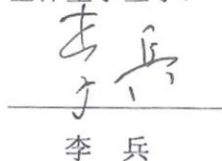 李兵
李 兵